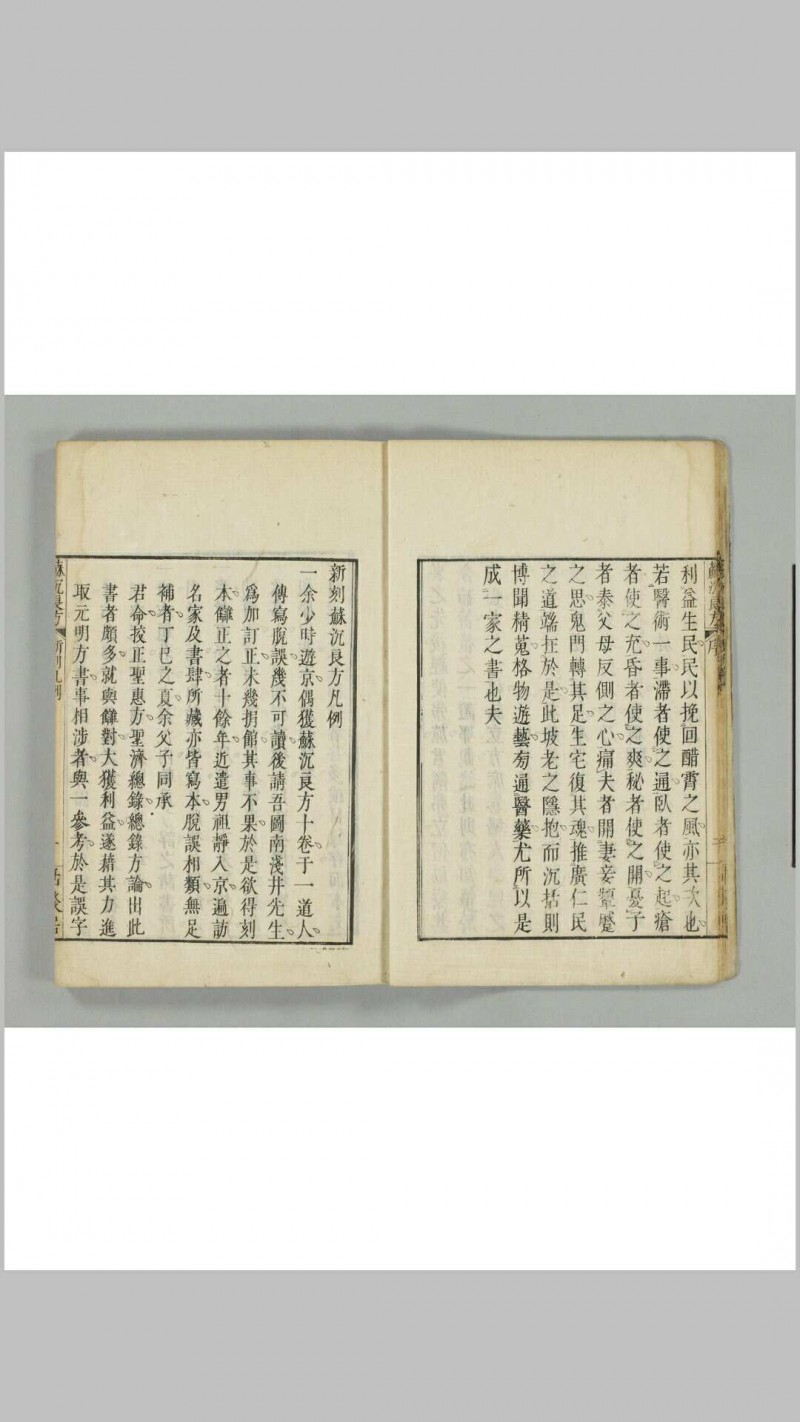 利益生民民以挽回醋霄之風亦其次也
若醫術一事滯者使之通臥者使之起瘡
者使之充昏者使之爽秘者使之開憂子
者泰父母反側之心痛夫者開妻妾顰蹙
之思鬼門轉其足生宅復其魂推廣仁民
之道端在於是此坡老之隱抱而沉括則
博聞精蒐格物遊藝旁通醫藥尤所以是
成一家之書也夫
新刻蘇沉良方凡例
一余少時遊京偶獲蘇沉良方十卷于一道人
傳寫脫誤幾不可讀後請吾圖南淺井先生
爲加訂正未幾捐館其事不果於是欲得刻
本讎正之者十餘年近遣男祖靜入京遍訪
名家及書肆所藏亦皆寫本脫誤相類無足
補者丁巳之夏余父子同承
君命挍正聖惠方聖濟總錄總錄方論出此
書者頗多就與讎對大獲利益遂藉其力進
取元明方書事相涉者與一參考於是誤字
蘇沉良方 新刻凡例